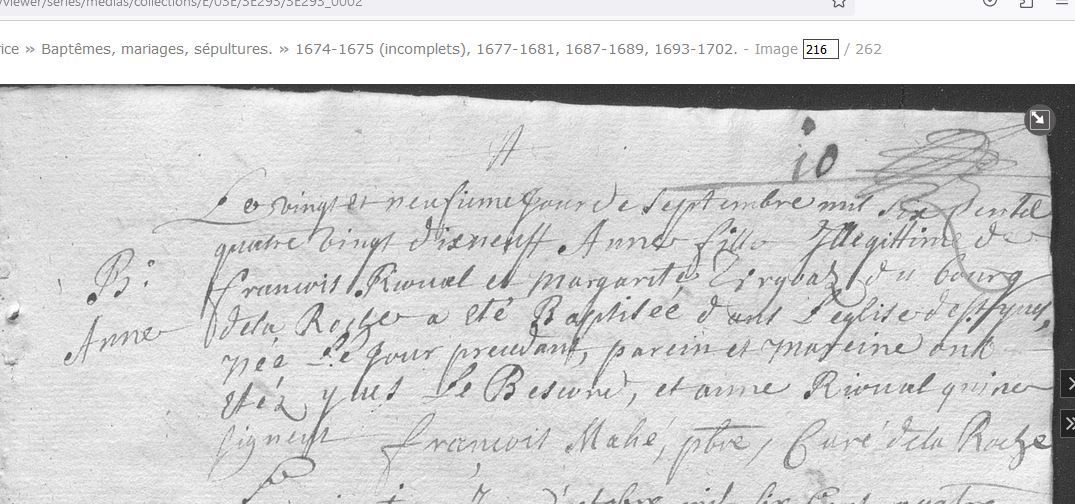 /viewer/series/medias/collections/E/03E/3E293/3E293_0002
rice » Baptêmes, mariages, sépultures. » 1674-1675 (incomplets), 1677-1681, 1687-1689, 1693-1702. - Image 216 / 262
10
Le vingt et neufieme jour de Septembre mil six cents
quatre vingt dixneuff Anne fille Illegittime de
B.e
francois Rioual et margarite du bourg
Anne
dela Roche a eté Baptisée dans L'eglise de St yves,
née Le jour precedant, parein et mareine ont
etéz yves Le Bescond, et anne Rioual qui ne
signent francois Mahé, ptre, Curé dela Roche
octobre mil six Cens quatre